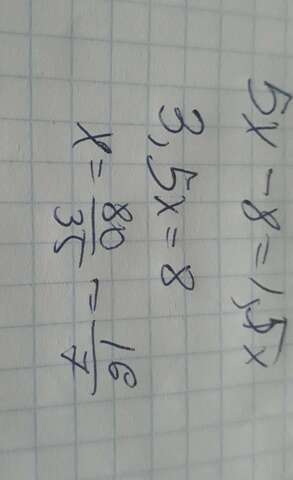 5x - 8 = 1,5x
3,5x = 8
x = 80/35 = 16/7